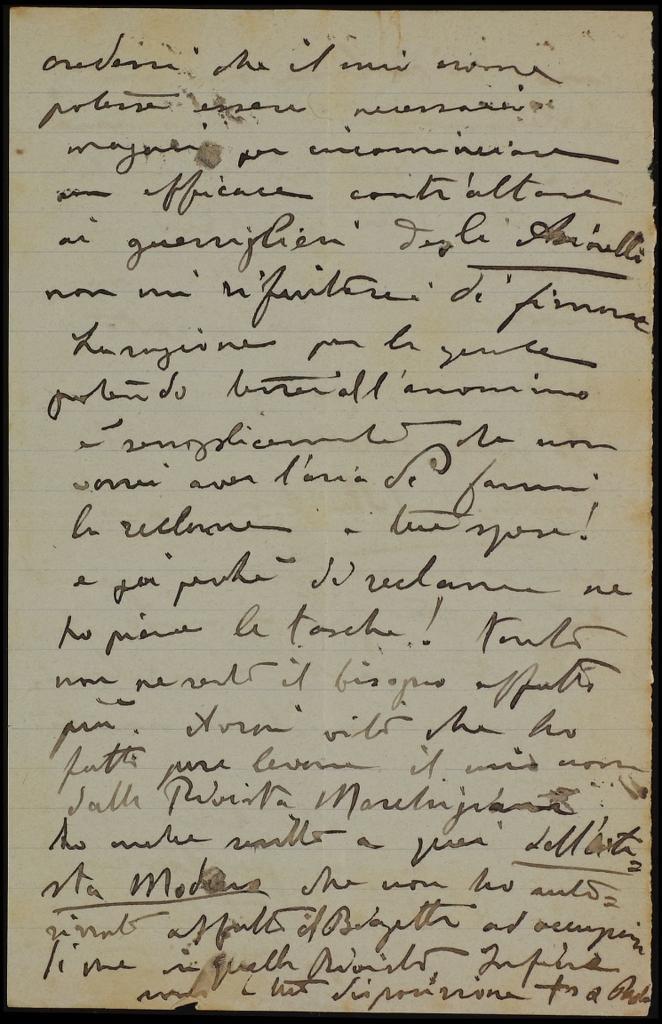 credessi che il mio nome
potesse essere necessario
magari per incominciare
un efficace contr'altare
ai guerriglieri degli
non mi rifiuterei di firmare
La ragione per la quale
potendo terrei all'anonimo
è semplicemente che non
vorrei aver l'aria di farmi
la reclame a tue spese!
e poi perché di reclame ne
ho piene le tasche! Tanto
non ne sento il bisogno affatto
più. Avrai visto che ho
fatto pure levare il mio nome
dalla Rivista Marchigiana
ho anche scritto a quei dell'Arti=
sta Moderno che non ho auto=
rizzato affatto il Bogetti ad occupar
si di me in quella Rivista. Infine
sono a tua disposizione